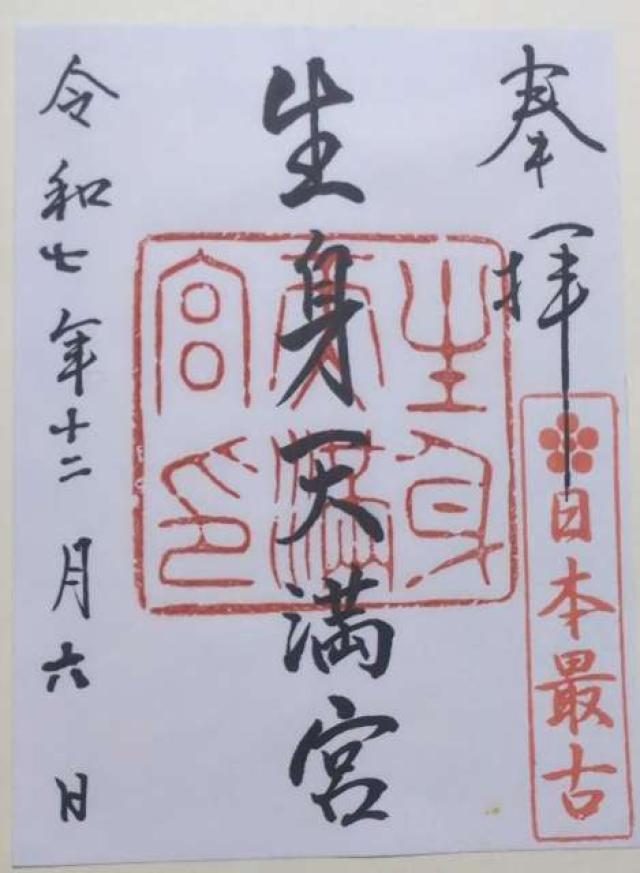 奉拝
日本最古
生身天満宮
生身天満宮印
令和七年十二月六日